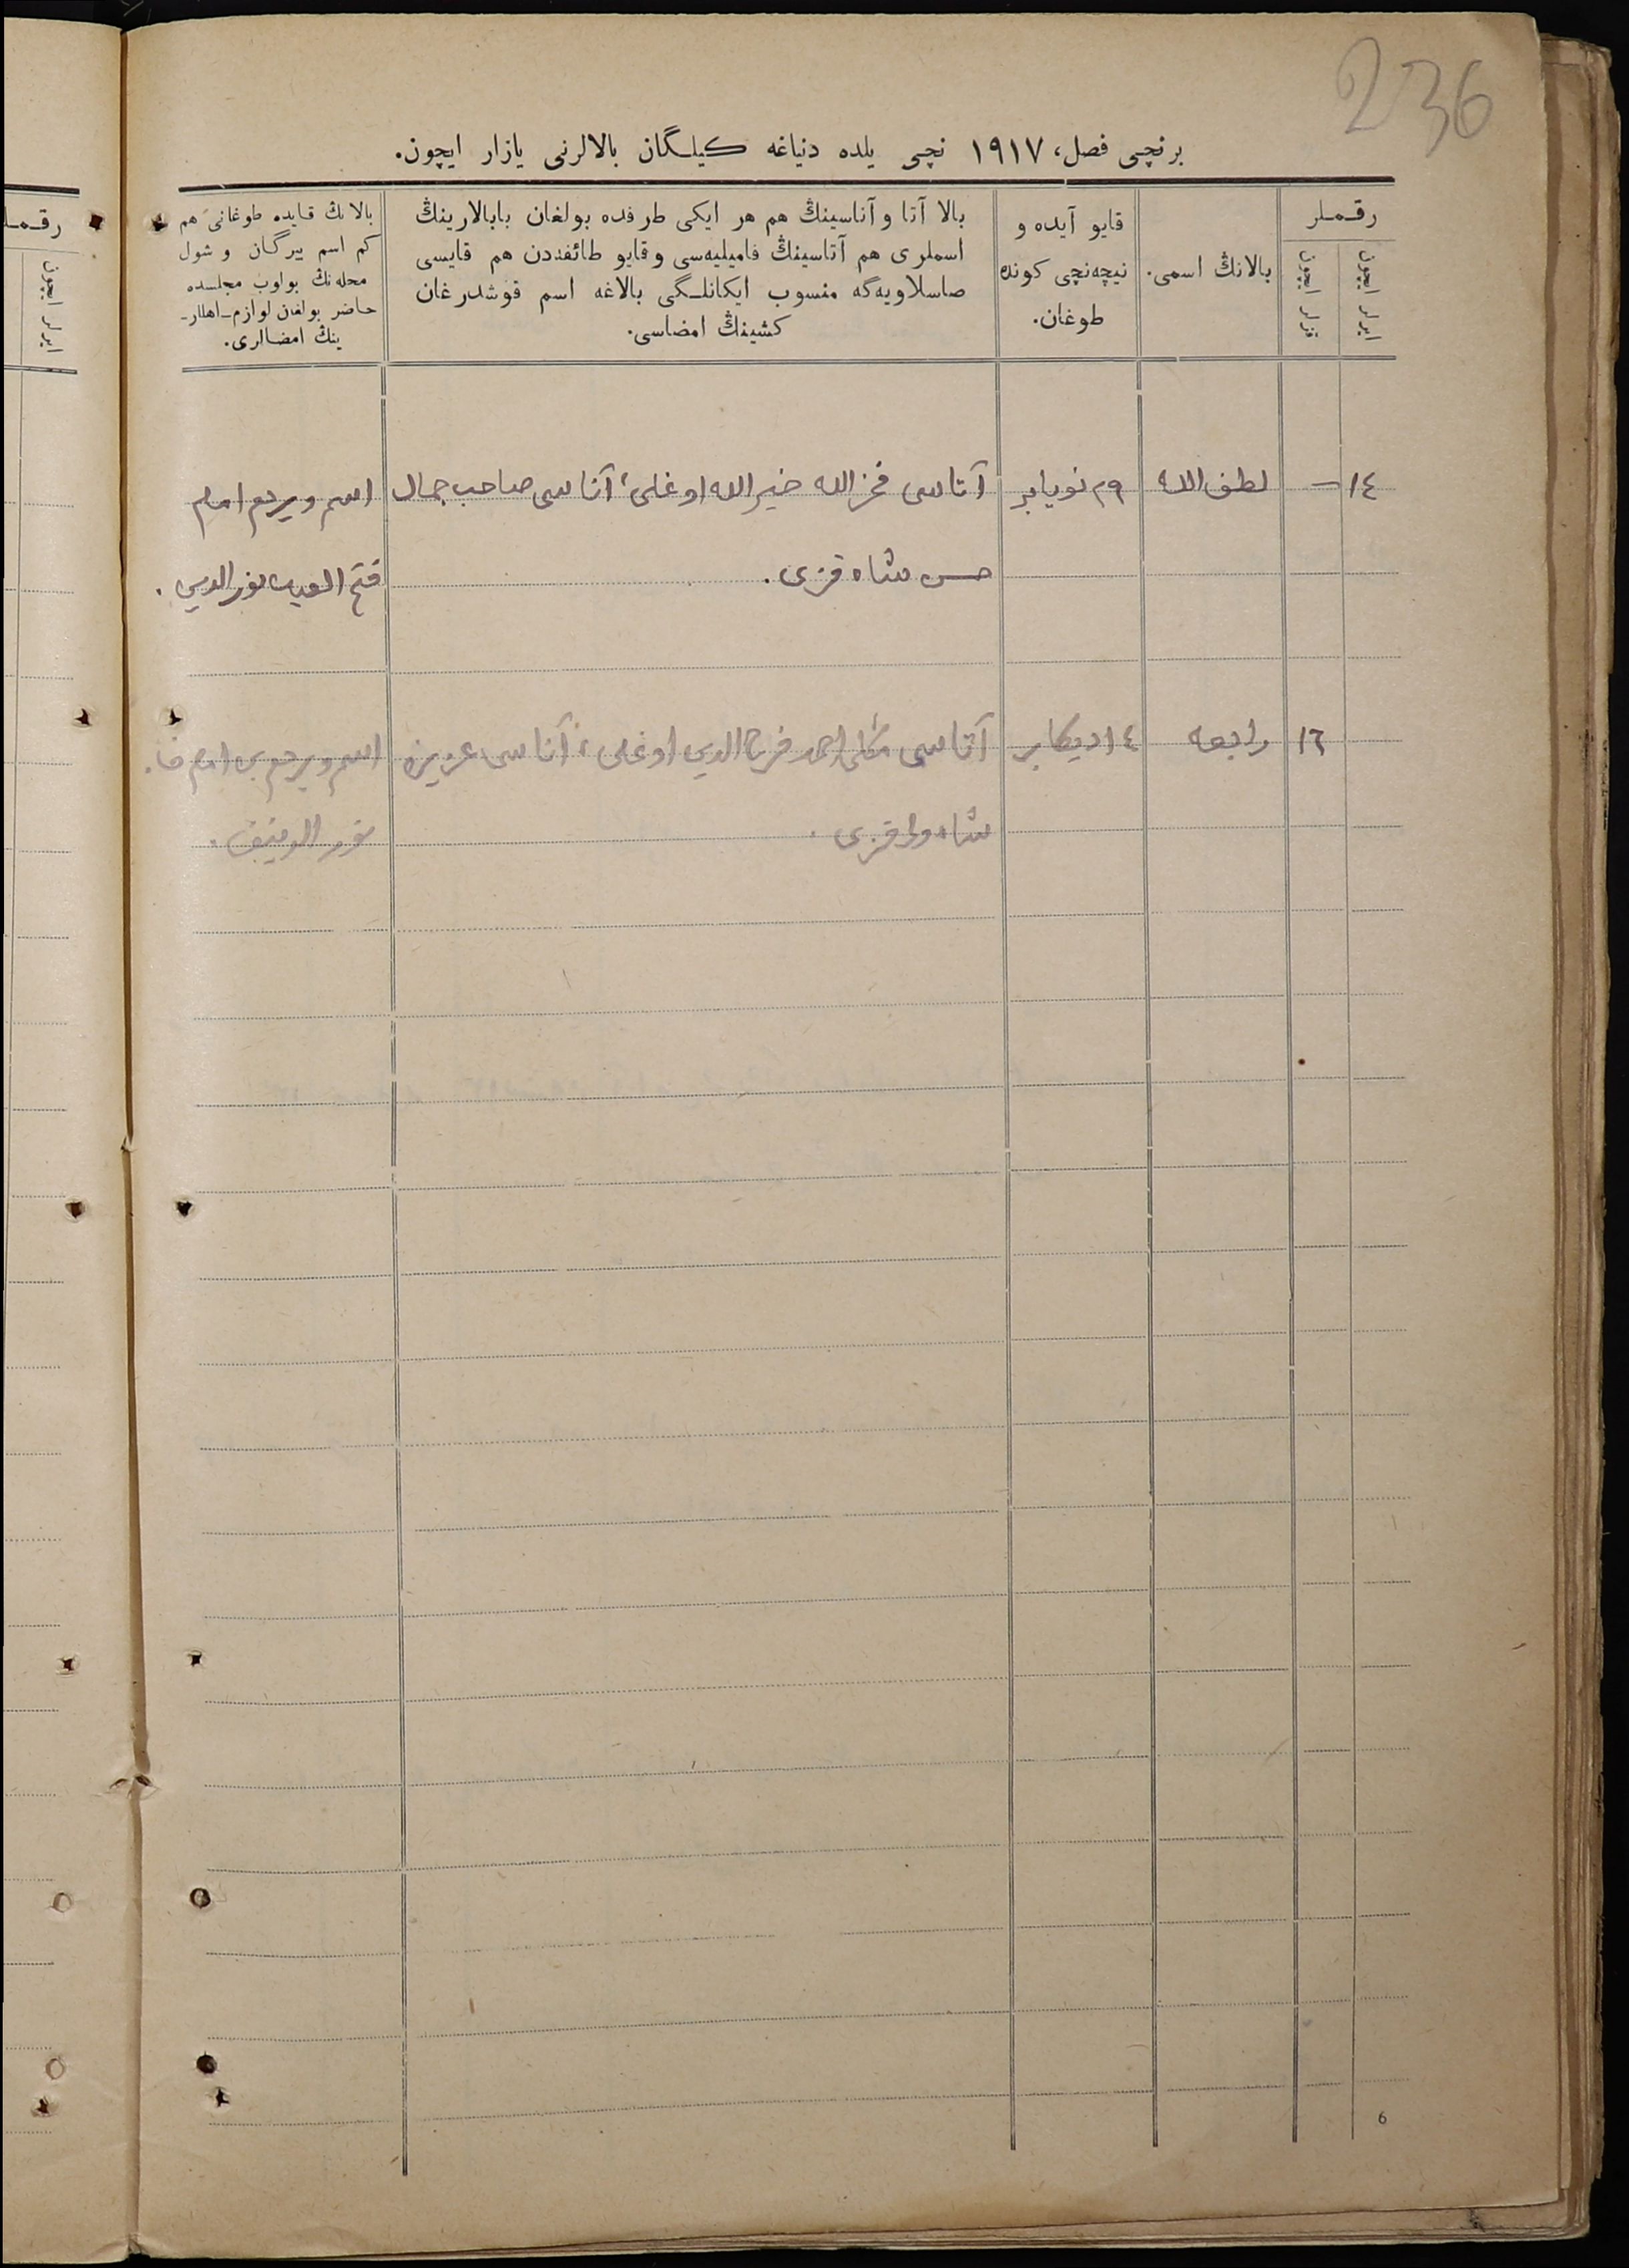 236
برنچی فصل، ١٩١٧ نچی یلده دنیاغه کیلگان بالالرنی یازار ایچون.
رقملر
ایرلر ایچون
قزلر ایچون
بالانڭ اسمی.
قایو آیده و
نیچه‌نچی کونده
طوغان.
بالا آتا و آناسینڭ هم هر ایکی طرفده بولغان بابالارینڭ
اسملری هم آتاسینڭ فامیلیه‌سی وقایو طائفه‌دن هم قایسی
صاسلاویه‌گه منسوب ایکانلگی بالاغه اسم قوشدرغان
کشینڭ امضاسی.
بالانڭ قایده طوغانی هم
کم اسم بیرگان و شول
محله‌نڭ بولوب مجلسده
حاضر بولغان لوازم-اهللر-
ینڭ امضالری.
١٤ — لطف الله ٢٩ نویابر آتاسی فخر الله خیر الله اوغلی، آناسی صاحب جمال اسم ویردم امام
حسن شاه قزی. فتح نور الدین.
١٢ رابعه ١٤ دیکابر آتاسی احمد الدین اوغلی، آناسی عزیزه اسم ویردم امام
شاه ولی قزی.
رقملر
ایرلر ایچون
6